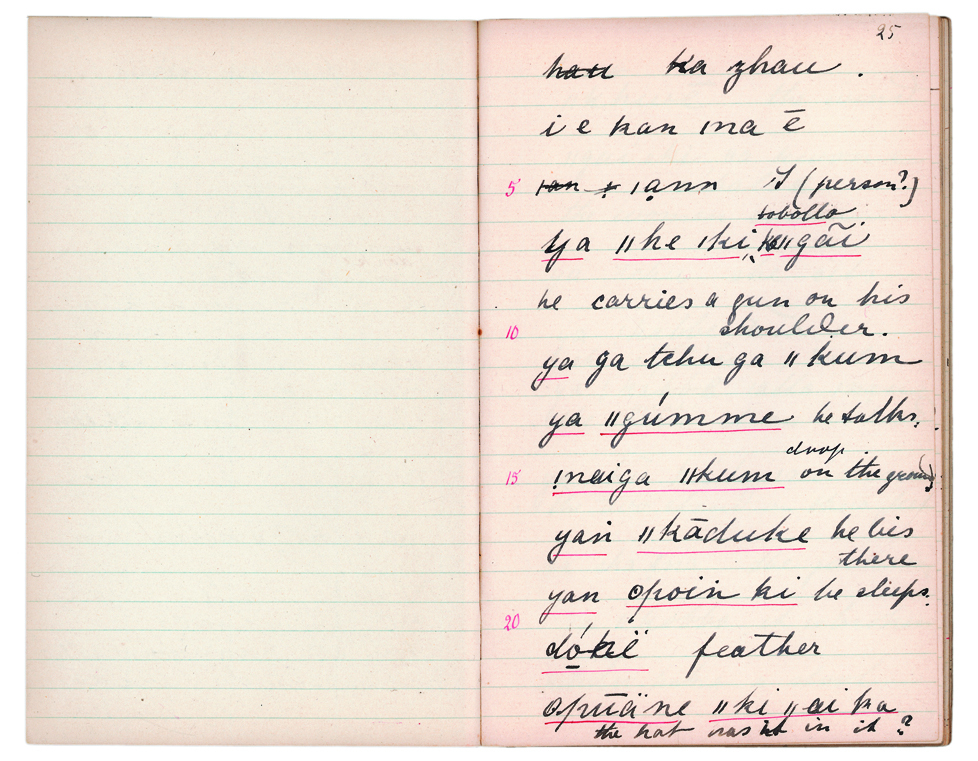 25
hau ka zhau .
i e kan ına ē
5 ıan ı ıạnn I (person?)
sobolla
ya ǁhe ıki k ǁgãi
he carries a gun on his
10 shoulder.
ya ga tchu ga ǁkum
ya ǁgúmme he talks.
drop
15 !naiga ǁkum on the ground)
yan ǁkāduke he lies
there
yan opoin ki he sleeps.
20
dó̱kë feather
opūäne ǁki ǁai ka
the hat was in it ?